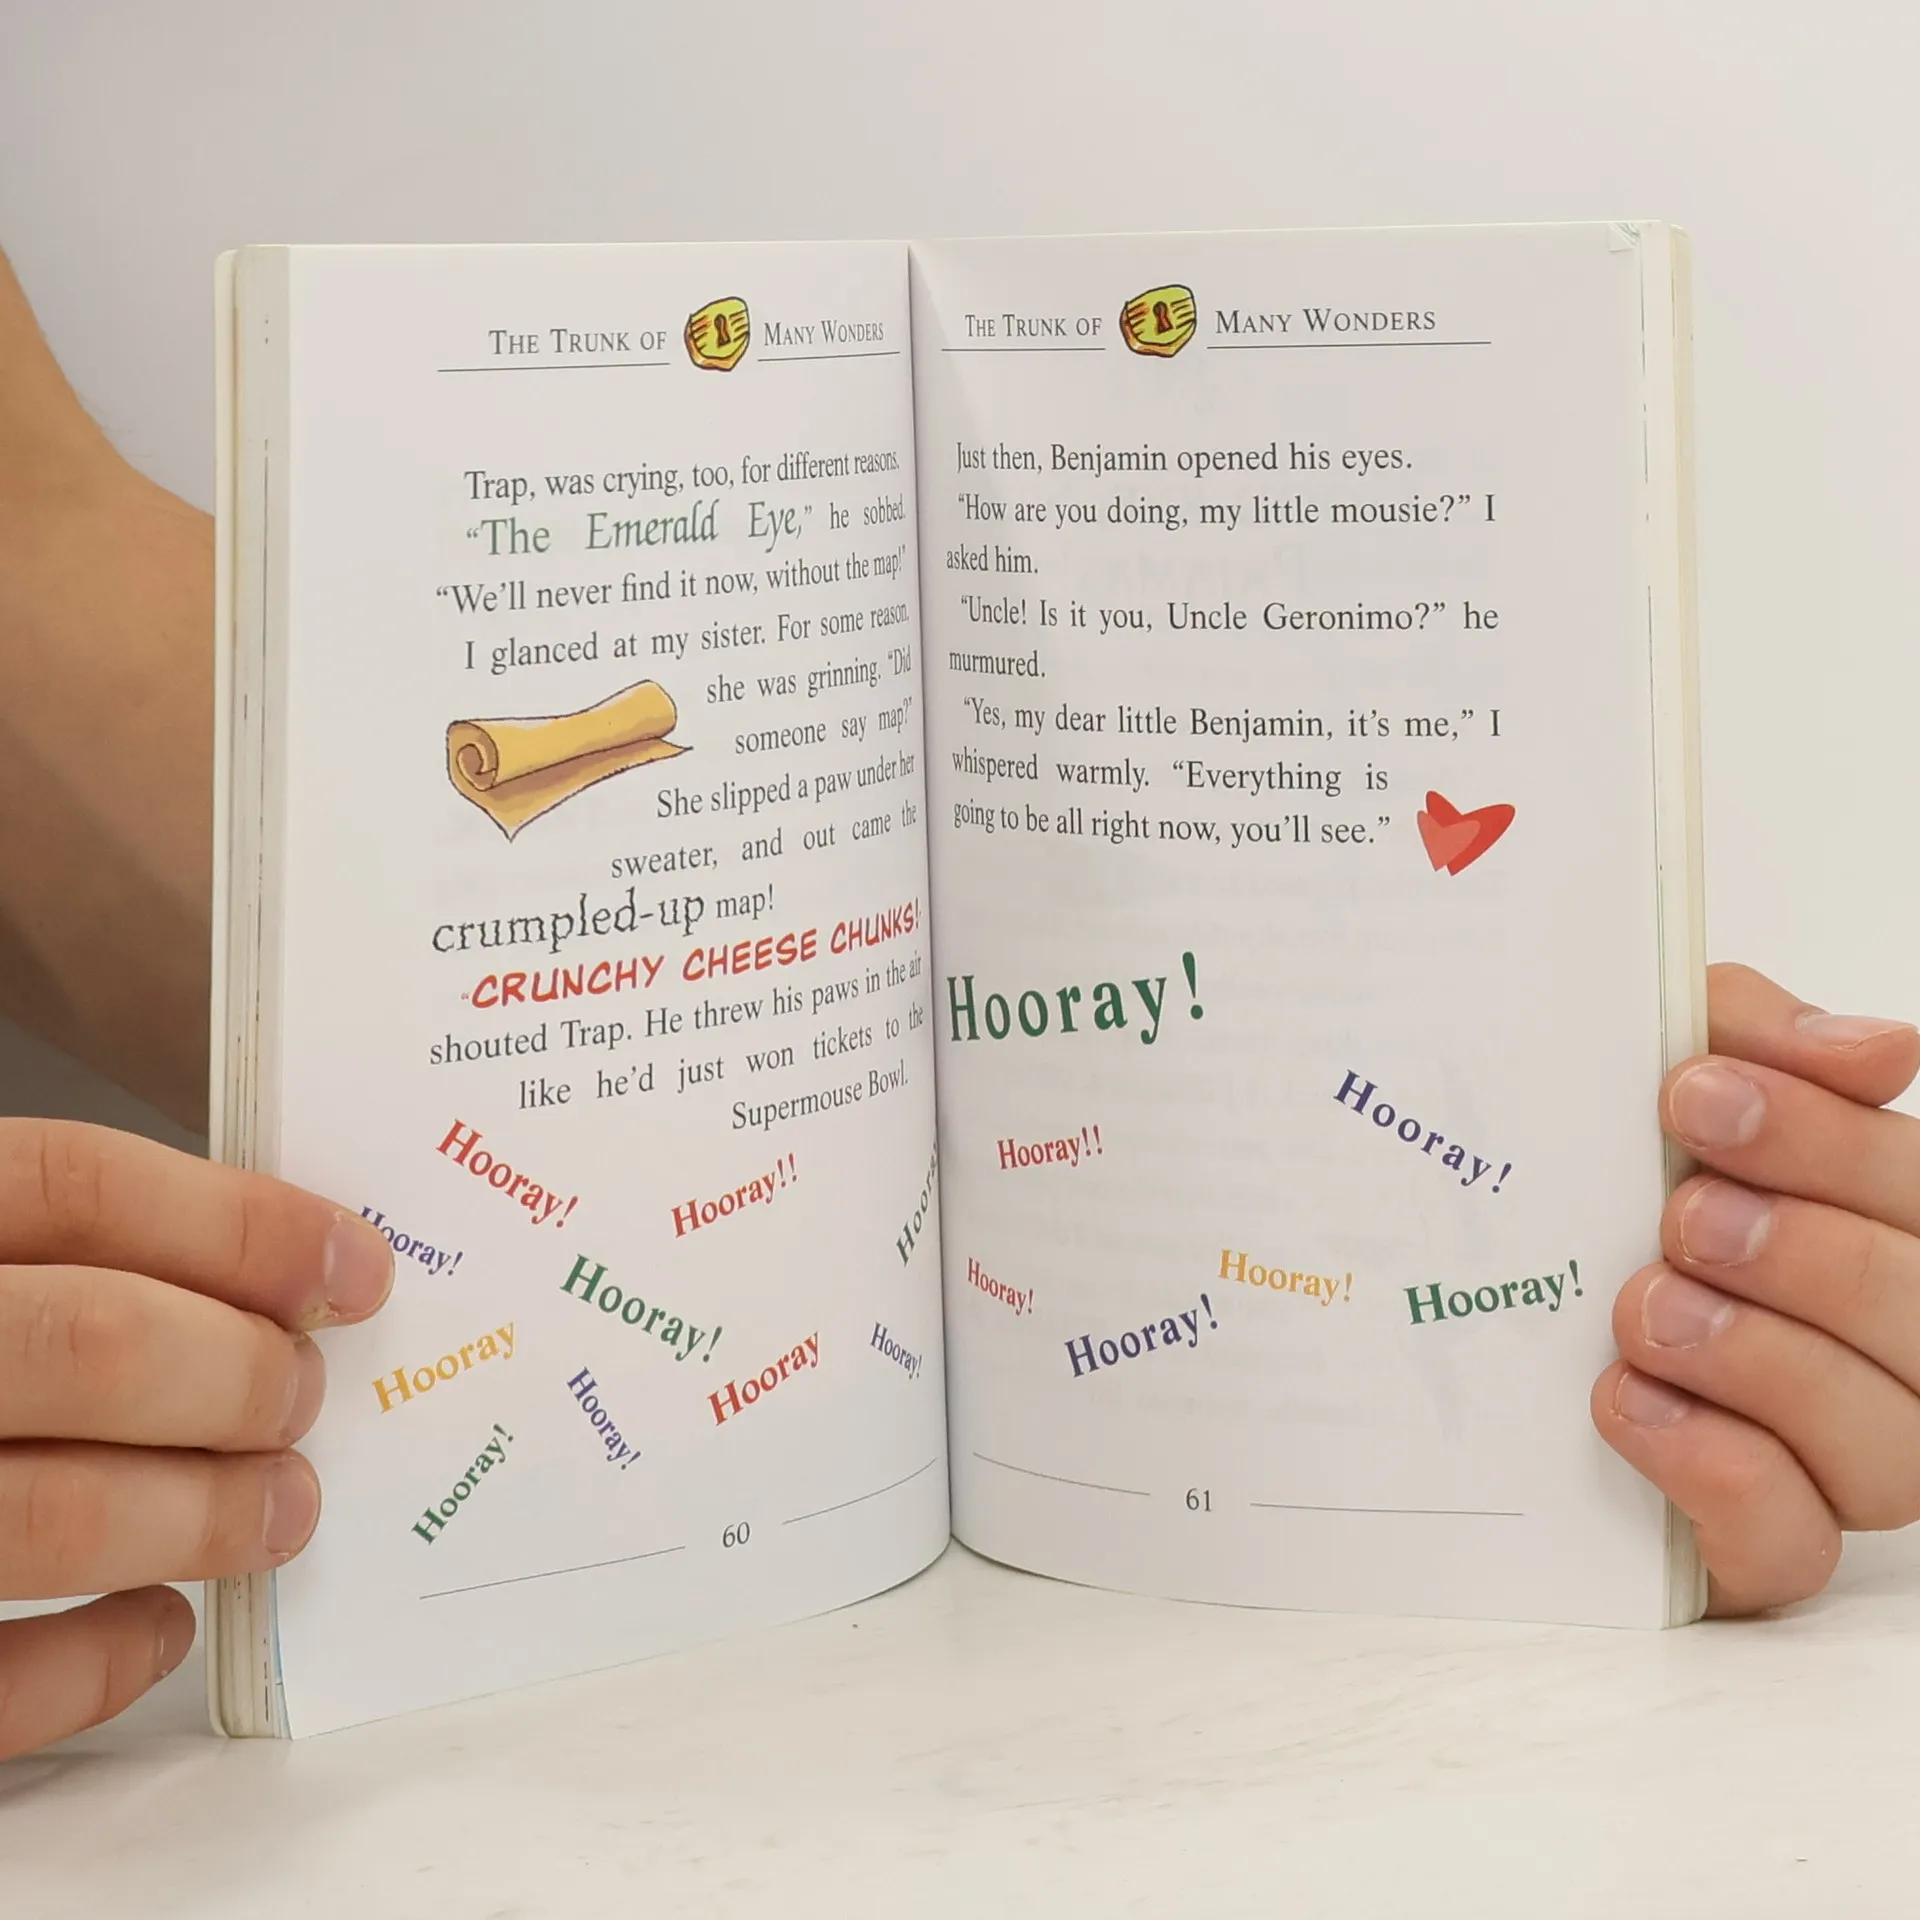 THE TRUNK OF MANY WONDERS
Trap, was crying, too, for different reasons.
“The Emerald Eye,” he sobbed.
“We’ll never find it now, without the map!”
I glanced at my sister. For some reason,
she was grinning. “Did
someone say map?”
She slipped a paw under her
sweater, and out came the
crumpled-up map!
“CRUNCHY CHEESE CHUNKS!
shouted Trap. He threw his paws in the air
like he’d just won tickets to the
Supermouse Bowl.
Hooray!
Hooray!!
Hooray!
Hooray!
Hooray!
Hooray
Hooray
Hooray!
Hooray!
Hooray!
60
THE TRUNK OF MANY WONDERS
Just then, Benjamin opened his eyes.
“How are you doing, my little mousie?” I
asked him.
“Uncle! Is it you, Uncle Geronimo?” he
murmured.
“Yes, my dear little Benjamin, it’s me,” I
whispered warmly. “Everything is
going to be all right now, you’ll see.”
Hooray!
Hooray!
Hooray!!
Hooray!
Hooray!
Hooray!
Hooray!
61